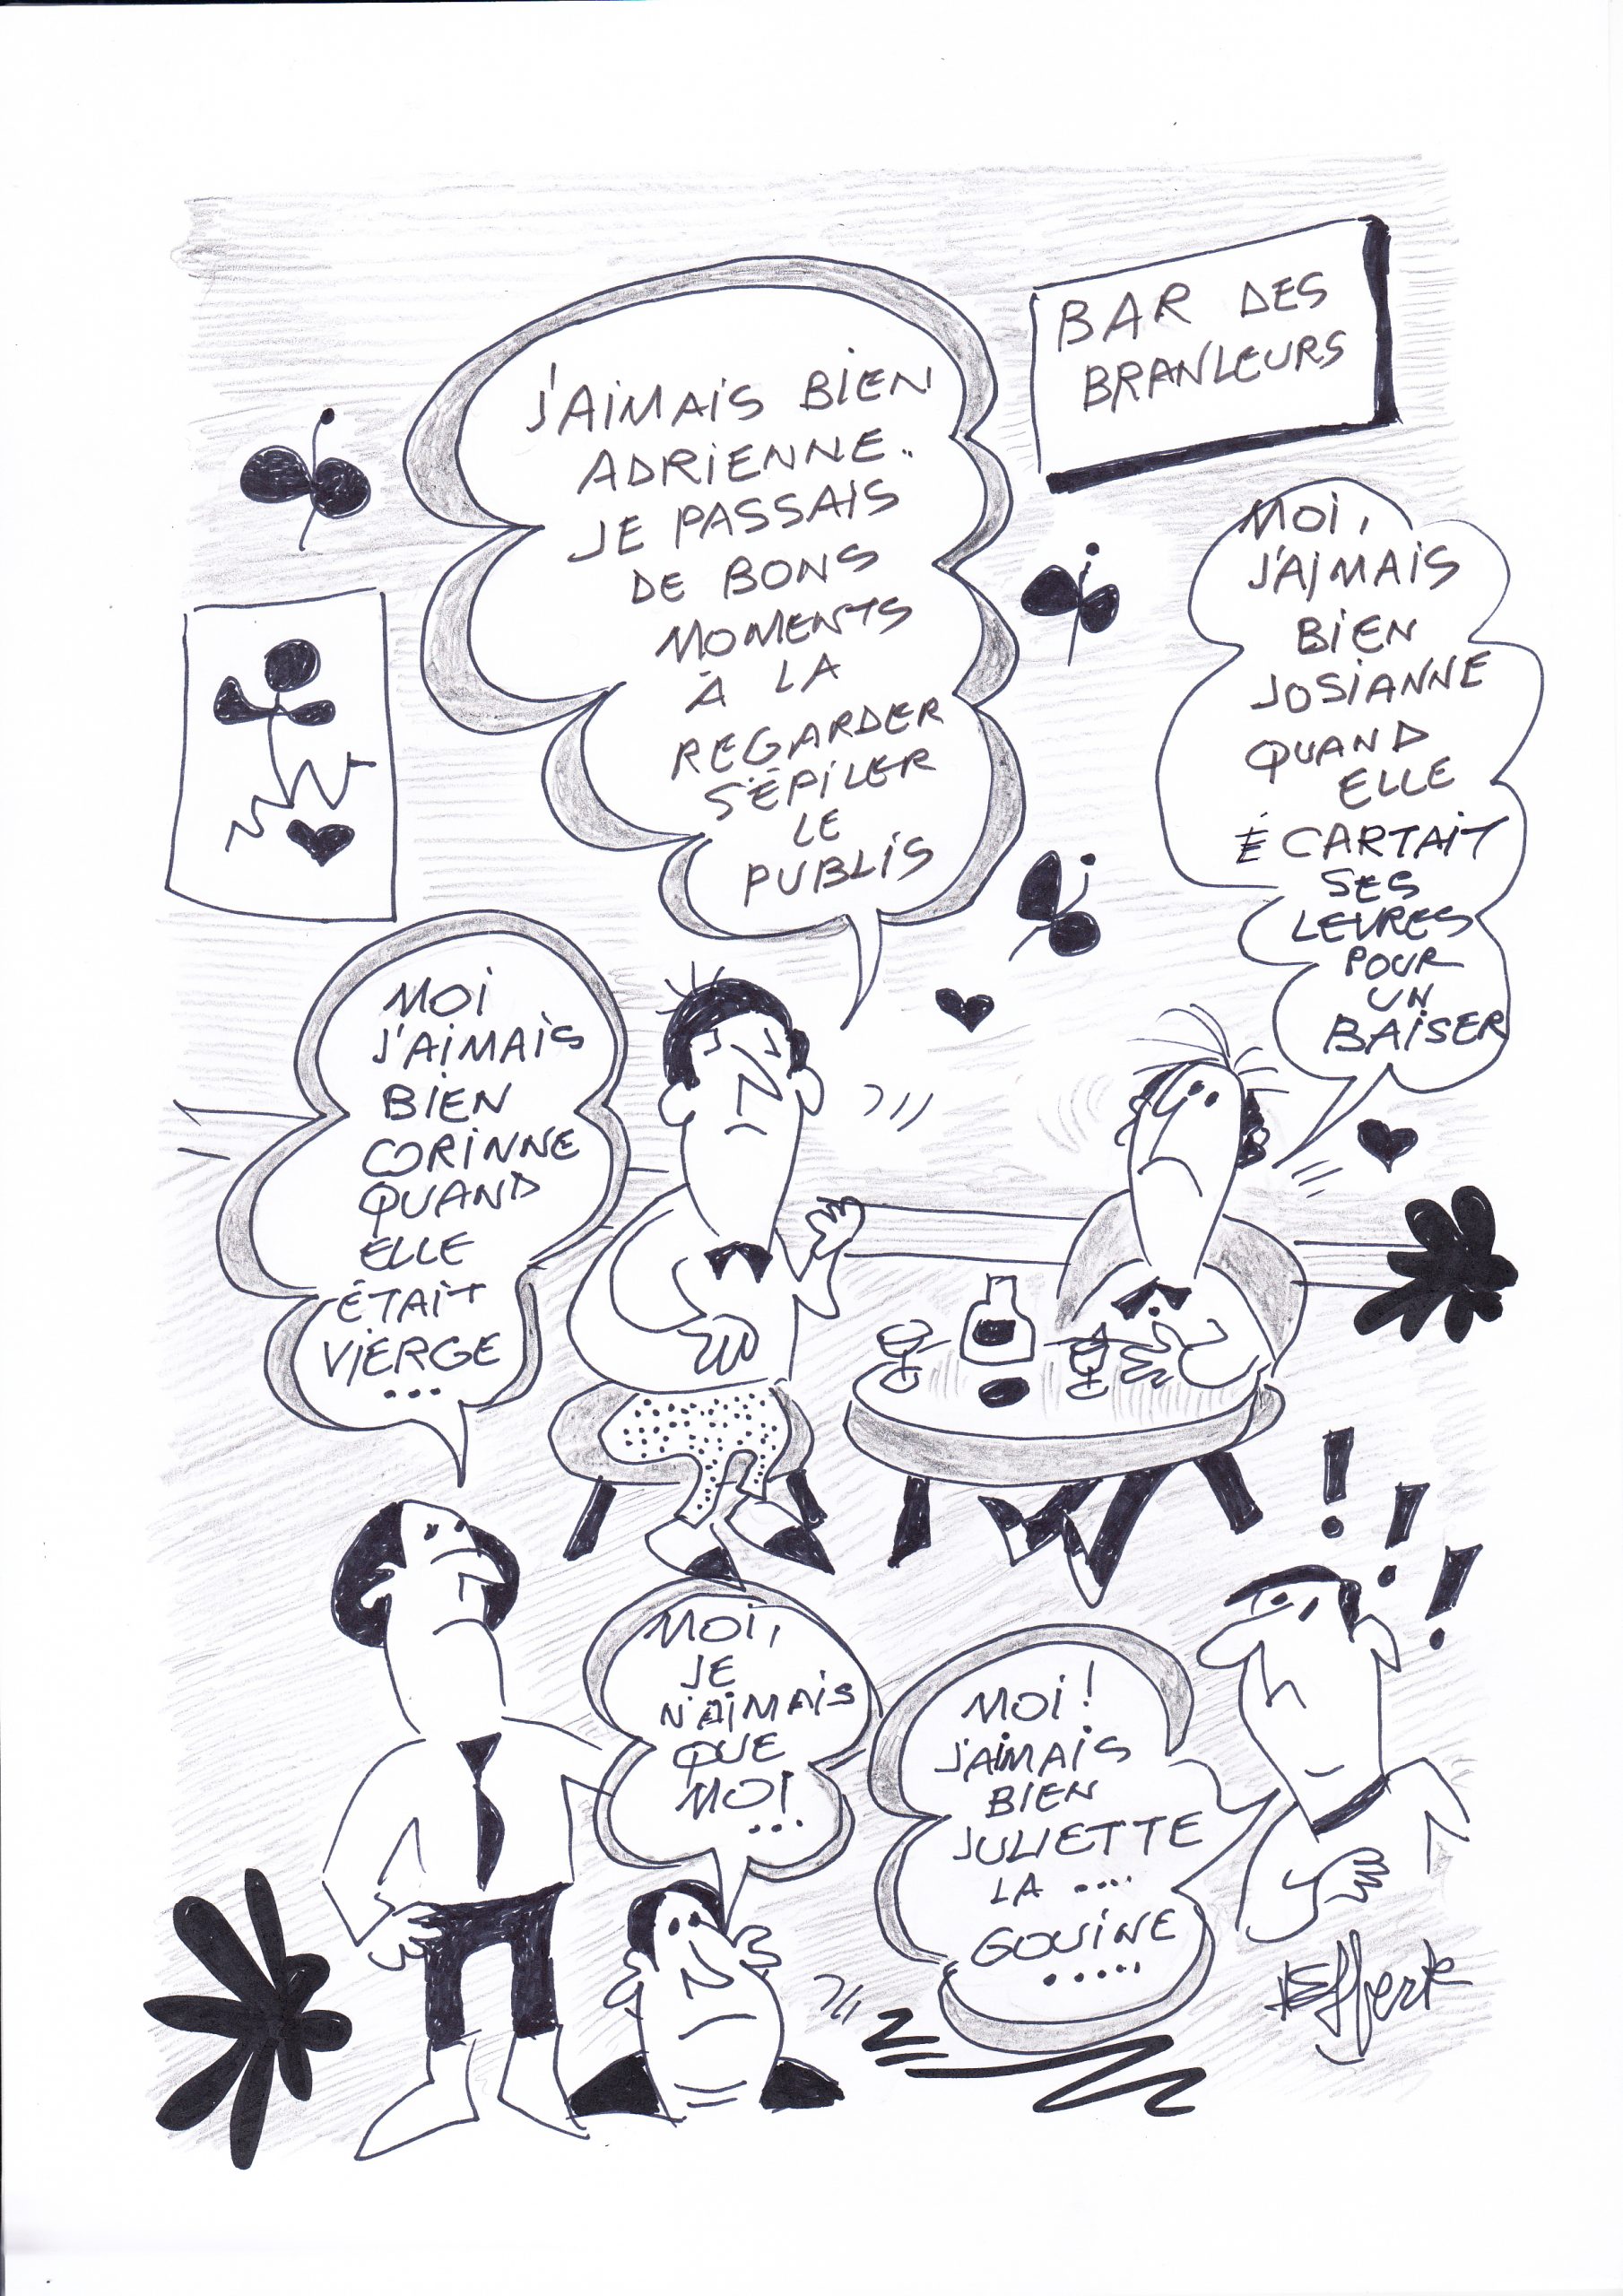 BAR DES
BRANLEURS
J'AIMAIS BIEN
ADRIENNE..
JE PASSAIS
DE BONS
MOMENTS
À LA
REGARDER
S'ÉPILER
LE
PUBLIS
MOI,
J'AIMAIS
BIEN
JOSIANNE
QUAND
ELLE
ÉCARTAIT
SES
LEVRES
POUR
UN
BAISER
MOI
J'AIMAIS
BIEN
CORINNE
QUAND
ELLE
ÉTAIT
VIERGE
...
MOI,
JE
N'AIMAIS
QUE
MOI
...
MOI!
J'AIMAIS
BIEN
JULIETTE
LA ....
GOUINE
.....
! ! !